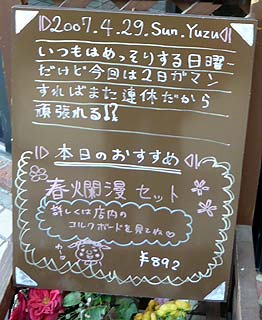 2007.4.29.Sun.Yuzu
いつもはめっそりする日曜
だけど今回は2日ガマン
すればまた連休だから
頑張れる!?
本日のおすすめ
春爛漫セット
詳しくは店内の
コルクボードを見てネ♡
¥892